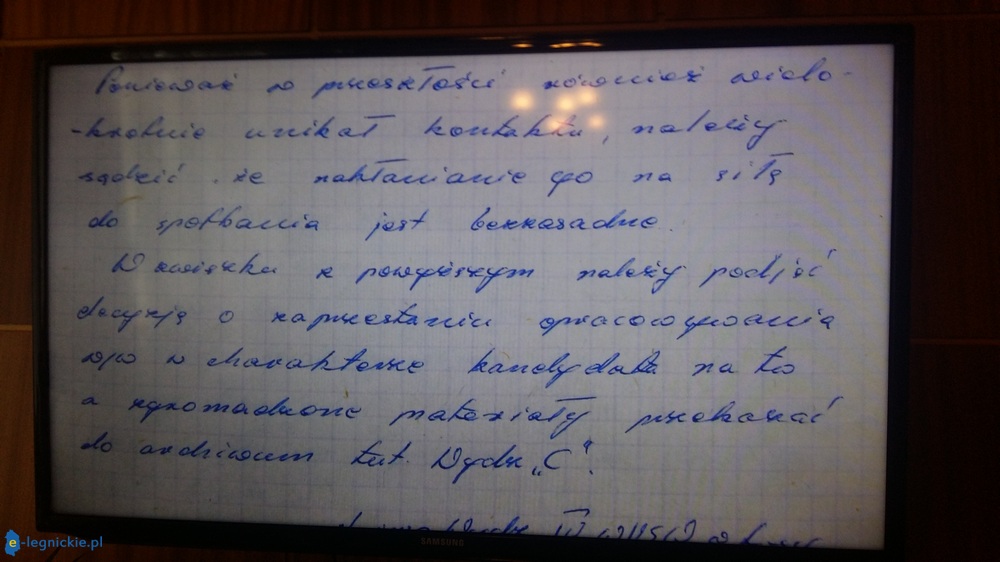 Ponieważ w przeszłości również wielo-
-krotnie unikał kontaktu, należy
sądzić że nakłanianie go na siłę
do spotkania jest bezzasadne.
W związku z powyższym należy podjąć
decyzję o zaprzestaniu opracowywania
w/w w charakterze kandydata na tw
a zgromadzone materiały przekazać
do archiwum tut. Wydz. „C".
SAMSUNG
e-legnickie.pl